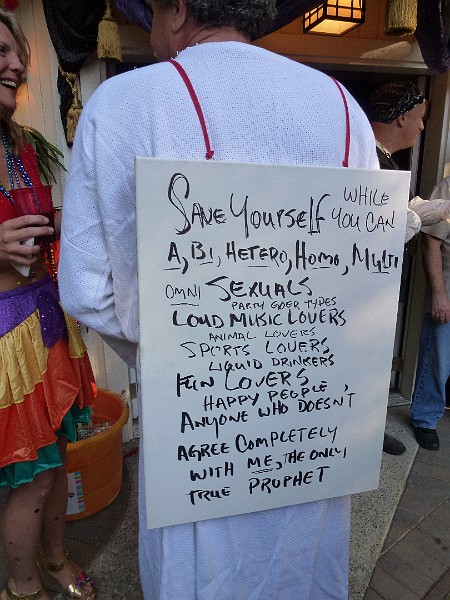 Save Yourself WHILE YOU CAN
A, BI, HETERO, HOMO, MULTI
OMNI SEXUALS
PARTY GOER TYPES
LOUD MUSIC LOVERS
ANIMAL LOVERS
SPORTS LOVERS
LIQUID DRINKERS
FUN LOVERS
HAPPY PEOPLE,
ANYONE WHO DOESN'T
AGREE COMPLETELY
WITH ME, THE ONLY,
TRUE PROPHET